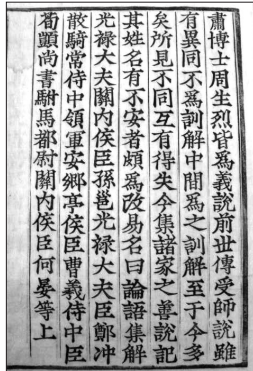 肅博士周生烈皆為義說前世傳受師說雖
有異同不為訓解中間為之訓解至于今多
矣所見不同互有得失今集諸家之善說記
其姓名有不安者頗為改易名曰論語集解
光祿大夫關內侯臣孫邕光祿大夫臣鄭沖
散騎常侍中領軍安鄉亭侯臣曹羲侍中臣
荀顗尚書駙馬都尉關內侯臣何晏等上